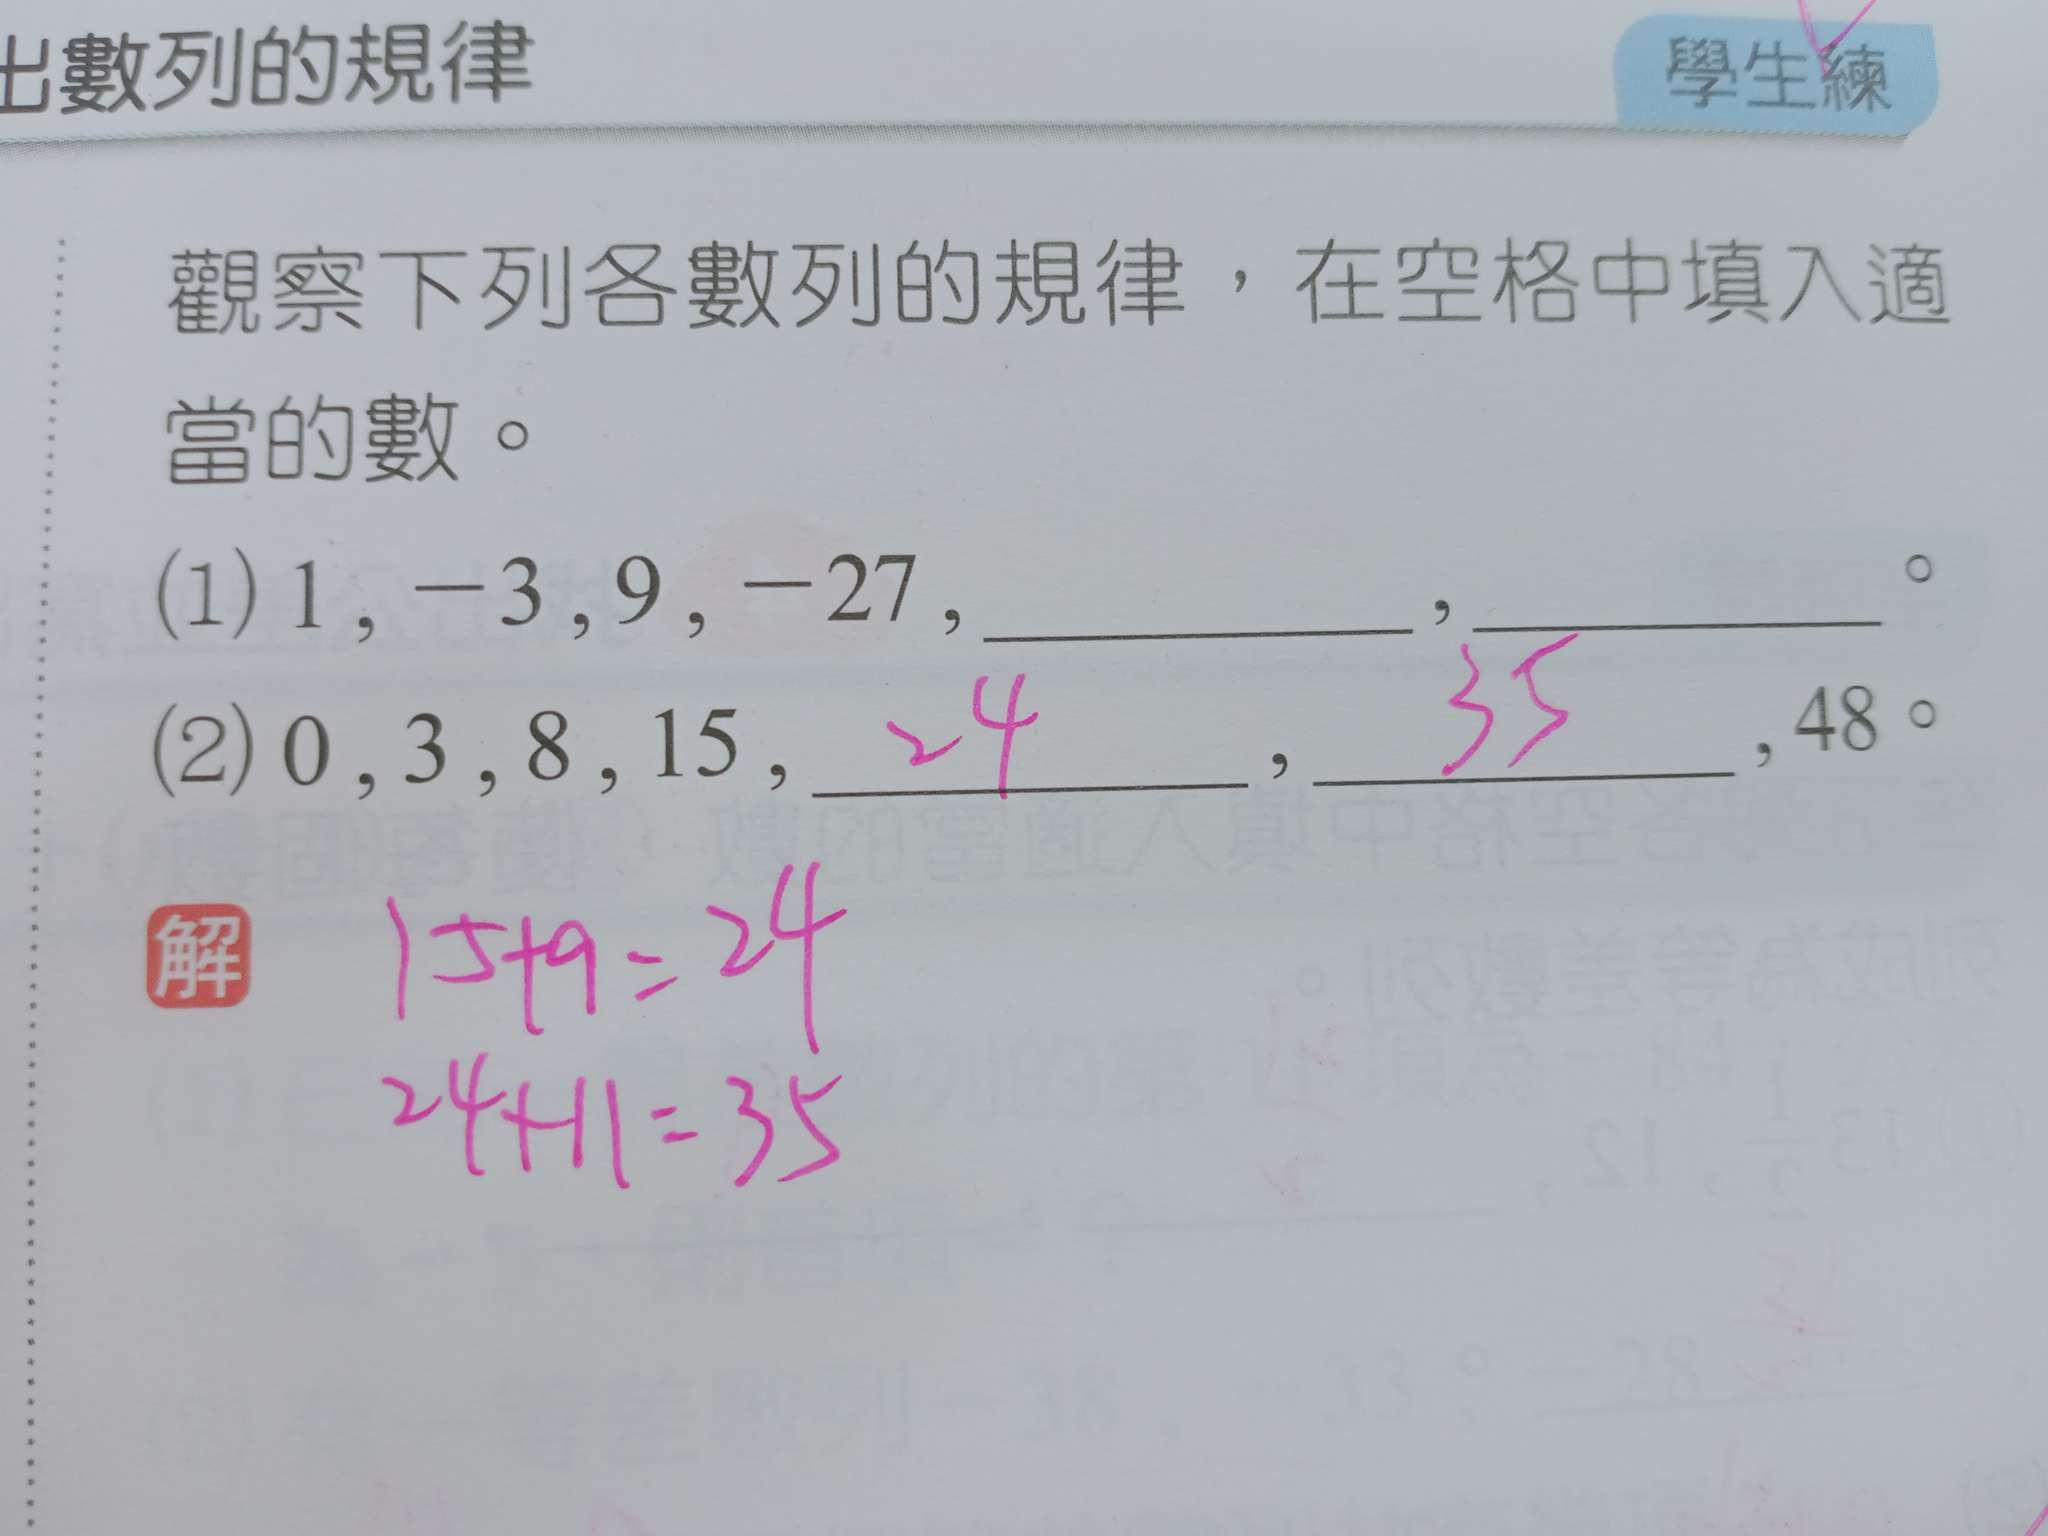 出數列的規律
學生練
觀察下列各數列的規律，在空格中填入適
當的數。
(1) 1 , －3 , 9 , －27 , ＿＿＿＿ , ＿＿＿＿。
(2) 0 , 3 , 8 , 15 , 24 , 35 , 48。
解
15+9=24
24+11=35